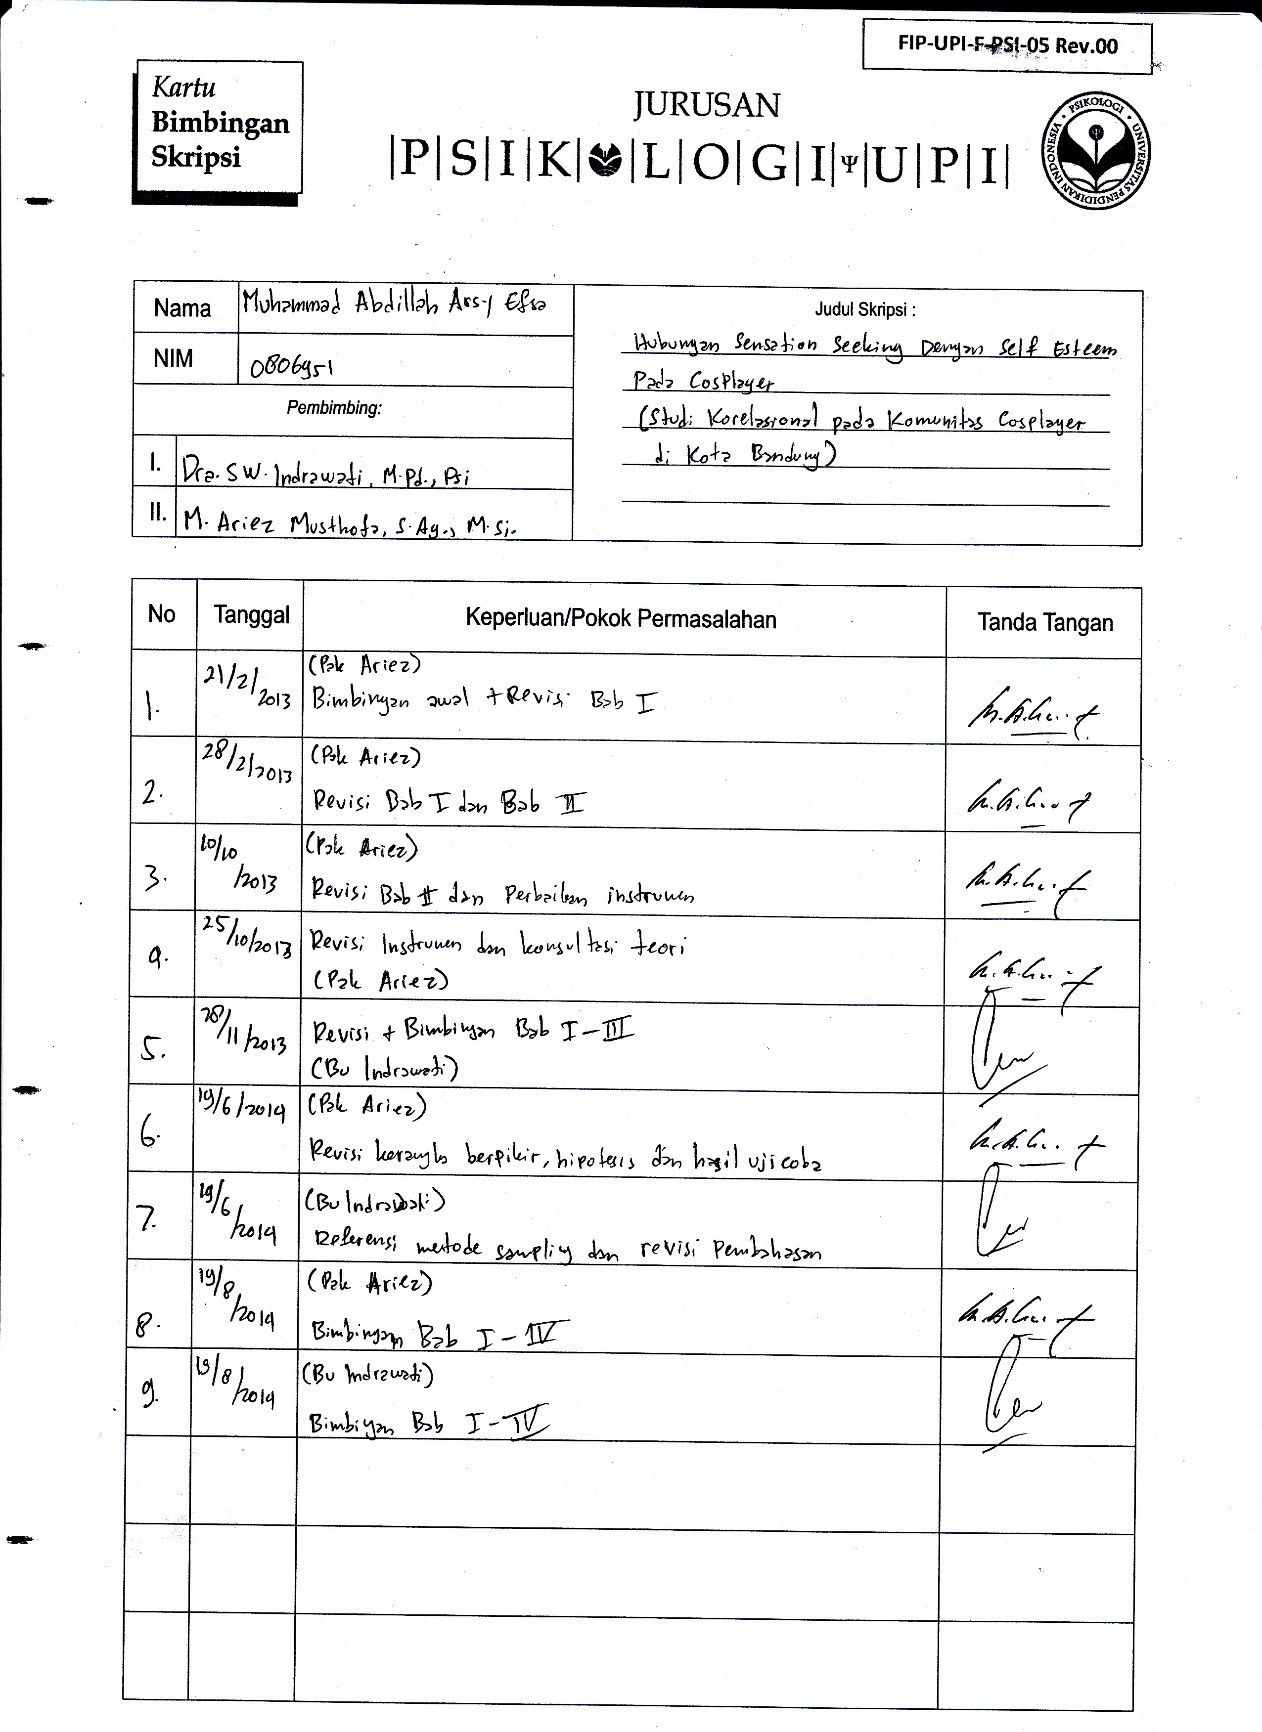 FIP-UPI-F-PSI-05 Rev.00
Kartu
Bimbingan
Skripsi
JURUSAN
|P|S|I|K|O|L|O|G|I|Ψ|U|P|I|
PSIKOLOGI • UNIVERSITAS PENDIDIKAN INDONESIA •
Nama Muhammad Abdillah Ars-y Efsa
NIM 0806951
Pembimbing:
I. Dra. SW. Indrawati, M.Pd., Psi
II. M. Ariez Musthofa, S.Ag., M.Si.
Judul Skripsi :
Hubungan Sensation Seeking Dengan Self Esteem
Pada Cosplayer
(Studi Korelasional pada Komunitas Cosplayer
di Kota Bandung)
No Tanggal Keperluan/Pokok Permasalahan Tanda Tangan
1. 21/2/2013 (Pak Ariez)
Bimbingan awal + Revisi Bab I
2. 28/2/2013 (Pak Ariez)
Revisi Bab I dan Bab II
3. 10/10/2013 (Pak Ariez)
Revisi Bab II dan Perbaikan instrumen
4. 25/10/2013 Revisi Instrumen dan konsultasi teori
(Pak Ariez)
5. 28/11/2013 Revisi + Bimbingan Bab I - III
(Bu Indrawati)
6. 19/6/2014 (Pak Ariez)
Revisi kerangka berpikir, hipotesis dan hasil ujicoba
7. 19/6/2014 (Bu Indrawati)
Referensi metode sampling dan revisi Pembahasan
8. 19/8/2014 (Pak Ariez)
Bimbingan Bab I - IV
9. 19/8/2014 (Bu Indrawati)
Bimbingan Bab I - IV